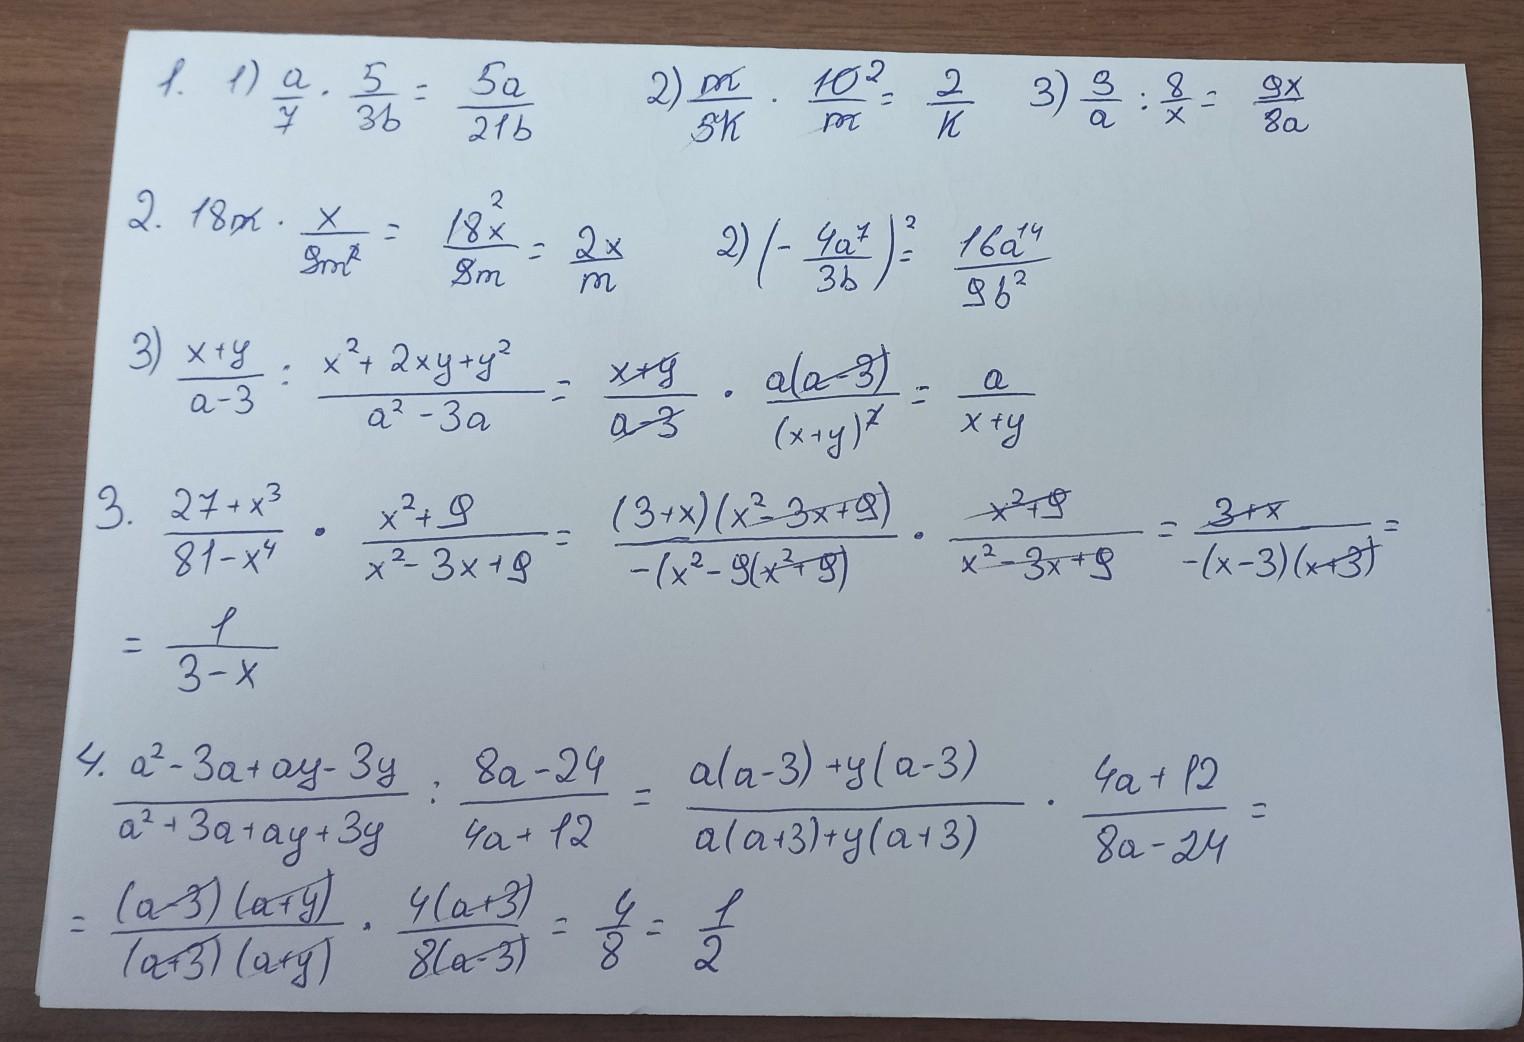 1. 1) a/7 · 5/3b = 5a/21b 2) m/5k · 10²/m = 2/k 3) 9/a : 8/x = 9x/8a
2. 18m · x/9m² = 18²x/9m = 2x/m 2) (- 4a⁷/3b)² = 16a¹⁴/9b²
3) x+y/a-3 : x²+2xy+y²/a²-3a = x+y/a-3 · a(a-3)/(x+y)² = a/x+y
3. 27+x³/81-x⁴ · x²+9/x²-3x+9 = (3+x)(x²-3x+9)/-(x²-9(x²+9) · x²+9/x²-3x+9 = 3+x/-(x-3)(x+3) =
= 1/3-x
4. a²-3a+ay-3y/a²+3a+ay+3y : 8a-24/4a+12 = a(a-3)+y(a-3)/a(a+3)+y(a+3) · 4a+12/8a-24 =
= (a-3)(a+y)/(a+3)(a+y) · 4(a+3)/8(a-3) = 4/8 = 1/2